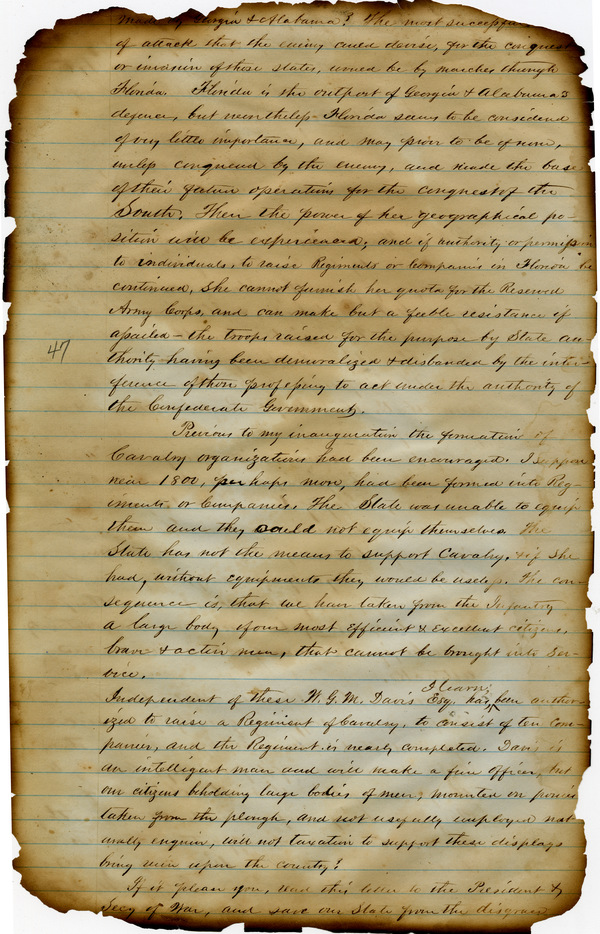 made of Georgia & Alabama? The most successful
of attack that the enemy could devise, for the conquest
or invasion of those States, would be by marches through
Florida. Florida is the outpost of Georgia & Alabama's
defence, but nevertheless Florida seems to be considered
of very little importance, and may prove to be of none,
unless conquered by the enemy, and made the base
of their future operations for the conquest of the
South; Then the power of her geographical po-
sition will be experienced; and if authority or permission
to individuals, to raise Regiments or Companies in Florida be
continued, She cannot furnish her quota for the Reserved
Army Corps, and can make but a feeble resistance if
assailed - the troops raised for the purpose by State au-
47
thority having been demoralized & disbanded by the inter-
ference of those professing to act under the authority of
the Confederate Government.
Previous to my inauguration the formation of
Cavalry organizations had been encouraged. I suppose
near 1800, perhaps more, had been formed into Reg-
iments or Companies. The State was unable to equip
them and they could not equip themselves. The
State has not the means to support Cavalry, & if she
had, without equipments they would be useless. The con-
sequence is, that we have taken from the Infantry
a large body of our most efficient & excellent citizens,
brave & active men, that cannot be brought into Ser-
vice.
I learn;
Independent of these W. G. M. Davis Esq. has been author-
ized to raise a Regiment of Cavalry, to consist of ten Com-
panies, and the Regiment is nearly completed. Davis is
an intelligent man and will make a fine officer, but
our citizens beholding large bodies of men, mounted on ponies
taken from the plough, and not usefully employed nat-
urally enquire, will not taxation to support these displays
bring ruin upon the country?
If it please you, read this letter to the President &
Secy of War, and save our State from the disgrace